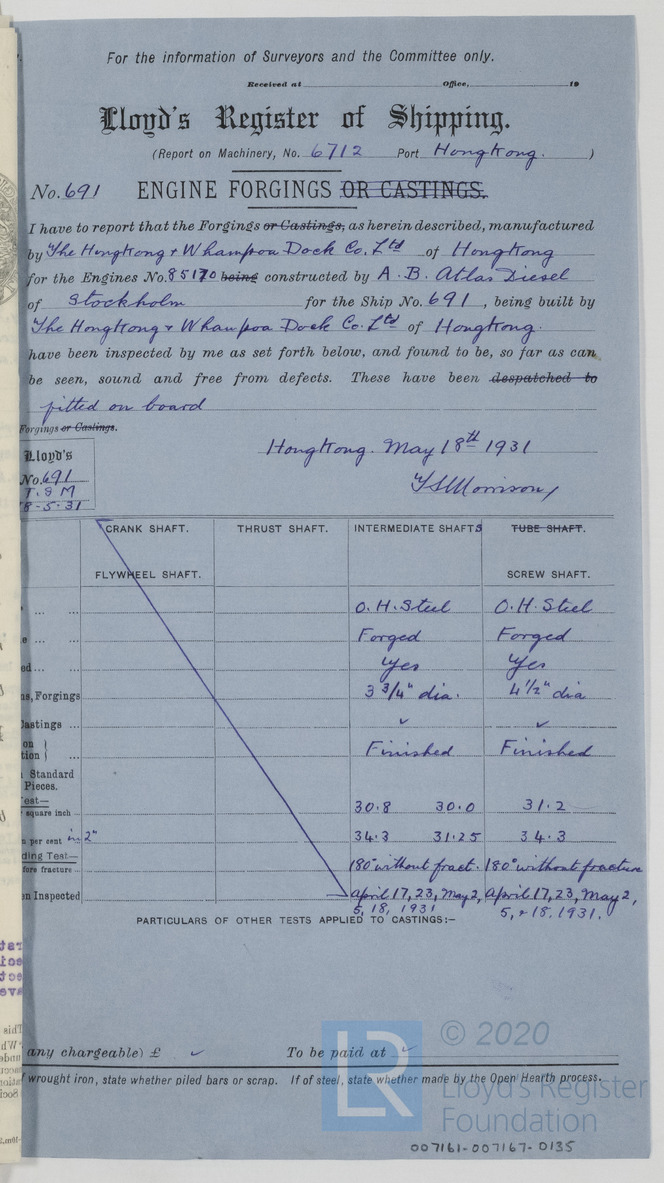 For the information of Surveyors and the Committee only.
Received at Office, 19
Lloyd's Register of Shipping.
(Report on Machinery, No. 6712 Port HongKong. )
No. 691 ENGINE FORGINGS OR CASTINGS.
I have to report that the Forgings or Castings, as herein described, manufactured
by The HongKong & Whampoa Dock Co. Ltd of HongKong
for the Engines No. 85170 being constructed by A. B. Atlas Diesel
of Stockholm for the Ship No. 691, being built by
The HongKong & Whampoa Dock Co. Ltd of HongKong.
have been inspected by me as set forth below, and found to be, so far as can
be seen, sound and free from defects. These have been despatched to
fitted on board
Forgings or Castings.
Lloyd's
No. 691
T.S M
8-5-31
HongKong. May 18th 1931
T S Morrison
CRANK SHAFT. THRUST SHAFT. INTERMEDIATE SHAFTS TUBE SHAFT.
FLYWHEEL SHAFT. SCREW SHAFT.
... ... O.H. Steel O.H. Steel
e ... ... Forged Forged
ed... ... Yes Yes
ns, Forgings 3 3/4" dia. 4 1/2" dia
Castings ... ✓ ✓
on }
tion } Finished Finished
Standard
Pieces.
est—
square inch ... 30.8 30.0 31.2
per cent in 2" 34.3 31.25 34.3
ding Test—
fore fracture ... 180° without fract. 180° without fracture
en Inspected April 17, 23, May 2, April 17, 23, May 2,
5, 18, 1931 5, & 18, 1931.
PARTICULARS OF OTHER TESTS APPLIED TO CASTINGS:—
any chargeable) £ ✓ To be paid at ✓
wrought iron, state whether piled bars or scrap. If of steel, state whether made by the Open Hearth process.
LR
© 2020
Lloyd's Register
Foundation
007161-007167-0135